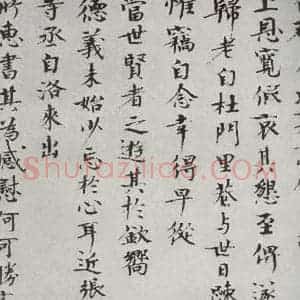 上恩寬假哀其懇至俾遂
歸老自杜門里巷與世日疎
惟竊自念幸得早從
當世賢者之遊其於欽嚮
德義未始少忘於心耳近張
寺丞自洛來出
所惠書其為感慰何可勝
Shufaziliao.com